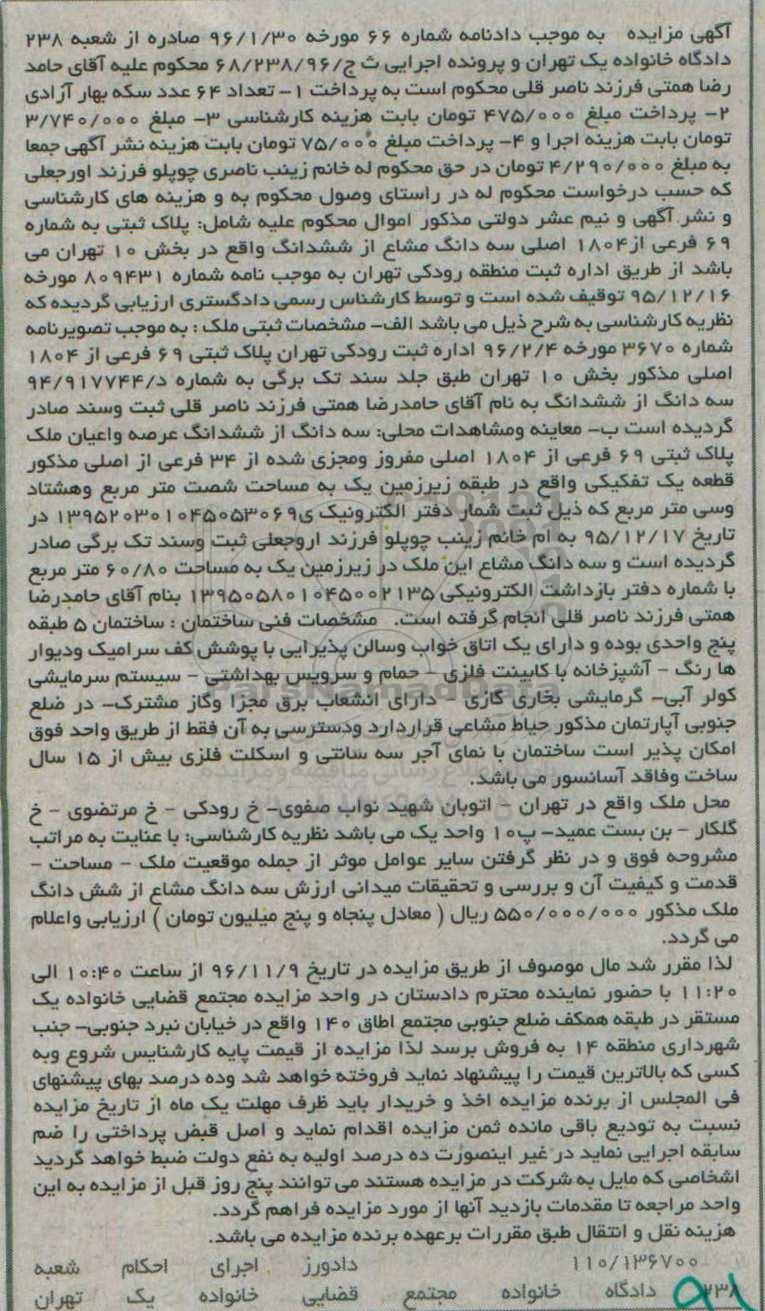 آگهی مزایده به موجب دادنامه شماره ۶۶ مورخه ۹۶/۱/۳۰ صادره از شعبه ۲۳۸
دادگاه خانواده یک تهران و پرونده اجرایی ث ج/۶۸/۲۳۸/۹۶ محکوم علیه آقای حامد
رضا همتی فرزند ناصر قلی محکوم است به پرداخت ۱- تعداد ۶۴ عدد سکه بهار آزادی
۲- پرداخت مبلغ ۴۷۵/۰۰۰ تومان بابت هزینه کارشناسی ۳- مبلغ ۳/۷۴۰/۰۰۰
تومان بابت هزینه اجرا و ۴- پرداخت مبلغ ۷۵/۰۰۰ تومان بابت هزینه نشر آگهی جمعا
به مبلغ ۴/۲۹۰/۰۰۰ تومان در حق محکوم له خانم زینب ناصری چوپلو فرزند اورجعلی
که حسب درخواست محکوم له در راستای وصول محکوم به و هزینه های کارشناسی
و نشر آگهی و نیم عشر دولتی مذکور اموال محکوم علیه شامل: پلاک ثبتی به شماره
۶۹ فرعی از۱۸۰۴ اصلی سه دانگ مشاع از ششدانگ واقع در بخش ۱۰ تهران می
باشد از طریق اداره ثبت منطقه رودکی تهران به موجب نامه شماره ۸۰۹۴۳۱ مورخه
۹۵/۱۲/۱۶ توقیف شده است و توسط کارشناس رسمی دادگستری ارزیابی گردیده که
نظریه کارشناسی به شرح ذیل می باشد الف- مشخصات ثبتی ملک : به موجب تصویرنامه
شماره ۳۶۷۰ مورخه ۹۶/۲/۴ اداره ثبت رودکی تهران پلاک ثبتی ۶۹ فرعی از ۱۸۰۴
اصلی مذکور بخش ۱۰ تهران طبق جلد سند تک برگی به شماره د/۹۴/۹۱۷۷۴۴
سه دانگ از ششدانگ به نام آقای حامدرضا همتی فرزند ناصر قلی ثبت وسند صادر
گردیده است ب- معاینه ومشاهدات محلی: سه دانگ از ششدانگ عرصه واعیان ملک
پلاک ثبتی ۶۹ فرعی از ۱۸۰۴ اصلی مفروز ومجزی شده از ۳۴ فرعی از اصلی مذکور
قطعه یک تفکیکی واقع در طبقه زیرزمین یک به مساحت شصت متر مربع وهشتاد
وسی متر مربع که ذیل ثبت شمار دفتر الکترونیک ی۱۳۹۵۲۰۳۰۱۰۴۵۰۵۳۰۶۹ در
تاریخ ۹۵/۱۲/۱۷ به ام خانم زینب چوپلو فرزند اروجعلی ثبت وسند تک برگی صادر
گردیده است و سه دانگ مشاع این ملک در زیرزمین یک به مساحت ۶۰/۸۰ متر مربع
با شماره دفتر بازداشت الکترونیکی ۱۳۹۵۰۵۸۰۱۰۴۵۰۰۲۱۳۵ بنام آقای حامدرضا
همتی فرزند ناصر قلی انجام گرفته است. مشخصات فنی ساختمان : ساختمان ۵ طبقه
پنج واحدی بوده و دارای یک اتاق خواب وسالن پذیرایی با پوشش کف سرامیک ودیوار
ها رنگ - آشپزخانه با کابینت فلزی - حمام و سرویس بهداشتی - سیستم سرمایشی
کولر آبی- گرمایشی بخاری گازی - دارای انشعاب برق مجزا وگاز مشترک- در ضلع
جنوبی آپارتمان مذکور حیاط مشاعی قراردارد ودسترسی به آن فقط از طریق واحد فوق
امکان پذیر است ساختمان با نمای آجر سه سانتی و اسکلت فلزی بیش از ۱۵ سال
ساخت وفاقد آسانسور می باشد.
محل ملک واقع در تهران - اتوبان شهید نواب صفوی- خ رودکی - خ مرتضوی - خ
گلکار - بن بست عمید- پ۱۰ واحد یک می باشد نظریه کارشناسی: با عنایت به مراتب
مشروحه فوق و در نظر گرفتن سایر عوامل موثر از جمله موقعیت ملک - مساحت -
قدمت و کیفیت آن و بررسی و تحقیقات میدانی ارزش سه دانگ مشاع از شش دانگ
ملک مذکور ۵۵۰/۰۰۰/۰۰۰ ریال ( معادل پنجاه و پنج میلیون تومان ) ارزیابی واعلام
می گردد.
لذا مقرر شد مال موصوف از طریق مزایده در تاریخ ۹۶/۱۱/۹ از ساعت ۱۰:۴۰ الی
۱۱:۲۰ با حضور نماینده محترم دادستان در واحد مزایده مجتمع قضایی خانواده یک
مستقر در طبقه همکف ضلع جنوبی مجتمع اطاق ۱۴۰ واقع در خیابان نبرد جنوبی- جنب
شهرداری منطقه ۱۴ به فروش برسد لذا مزایده از قیمت پایه کارشنایس شروع وبه
کسی که بالاترین قیمت را پیشنهاد نماید فروخته خواهد شد وده درصد بهای پیشنهای
فی المجلس از برنده مزایده اخذ و خریدار باید ظرف مهلت یک ماه از تاریخ مزایده
نسبت به تودیع باقی مانده ثمن مزایده اقدام نماید و اصل قبض پرداختی را ضم
سابقه اجرایی نماید در غیر اینصورت ده درصد اولیه به نفع دولت ضبط خواهد گردید
اشخاصی که مایل به شرکت در مزایده هستند می توانند پنج روز قبل از مزایده به این
واحد مراجعه تا مقدمات بازدید آنها از مورد مزایده فراهم گردد.
هزینه نقل و انتقال طبق مقررات برعهده برنده مزایده می باشد.
۱۱۰/۱۳۶۷۰۰ دادورز اجرای احکام شعبه
۲۳۸ دادگاه خانواده مجتمع قضایی خانواده یک تهران